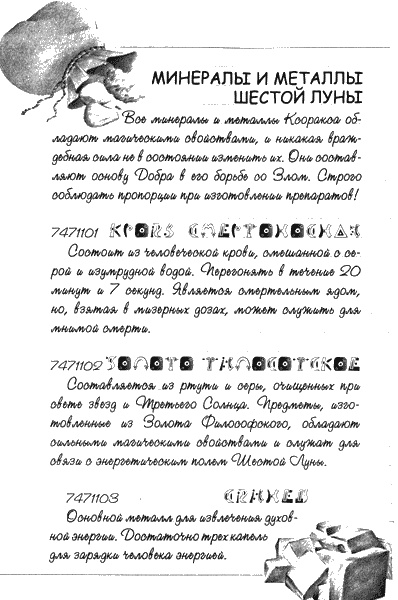 МИНЕРАЛЫ И МЕТАЛЛЫ
ШЕСТОЙ ЛУНЫ
Все минералы и металлы Ксоракса об-
ладают магическими свойствами, и никакая враж-
дебная сила не в состоянии изменить их. Они состав-
ляют основу Добра в его борьбе со Злом. Строго
соблюдать пропорции при изготовлении препаратов!
7471101 КРОВЬ СМЕРТОНОСНАЯ
Состоит из человеческой крови, смешанной с се-
рой и изумрудной водой. Перегонять в течение 20
минут и 7 секунд. Является смертельным ядом,
но, взятая в мизерных дозах, может служить для
мнимой смерти.
7471102 ЗОЛОТО
Составляется из ртути и серы, очищенных при
свете звезд и Третьего Солнца. Предметы, изго-
товленные из Золота Философского, обладают
сильными магическими свойствами и служат для
связи с энергетическим полем Шестой Луны.
7471103
Основной металл для извлечения духов-
ной энергии. Достаточно трех капель
для зарядки человека энергией.